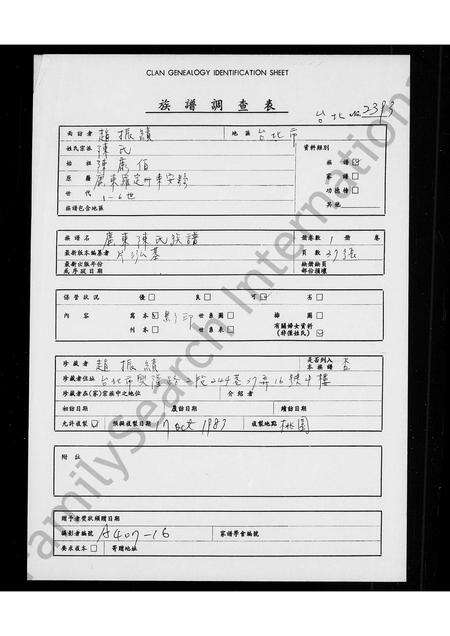 CLAN GENEALOGY IDENTIFICATION SHEET
族譜調查表
台北 No 2393
面訪者 趙振績 地區 台北市
姓氏宗派 陳氏 資料類別
始祖 陳 佰 族譜 ☑
原籍 廣東羅定州東安縣 家譜 □
世代 1-6世 功德榜 □
族譜包含地區 其他
族譜名 廣東陳氏族譜 冊卷數 1 冊 卷
最新版本編纂者 頁數 37張
最新出版年份 缺頁
或序跋日期 部份損壞
保管狀況 優 □ 良 □ 可 □ 劣 □
內容 寫本 影印 世系圖 □ 插圖 □
刊本 □ 世系表 □ 有關婦女資料
(非僅姓氏) ☑
珍藏者 趙振績 是否列入
本族譜 否
珍藏者住址 台北市興隆路2段244巷37弄16號4樓
珍藏者在(家)宗族中之地位 介紹者
初訪日期 覆訪日期 續訪日期
允許複製 ☑ 預擬複製日期 17 Oct 1987 複製地點 桃園
附註
贈予者受狀頒贈日期
攝影者編號 A407-16 家譜學會編號
要求載本 □ 寄贈地址
FamilySearch International